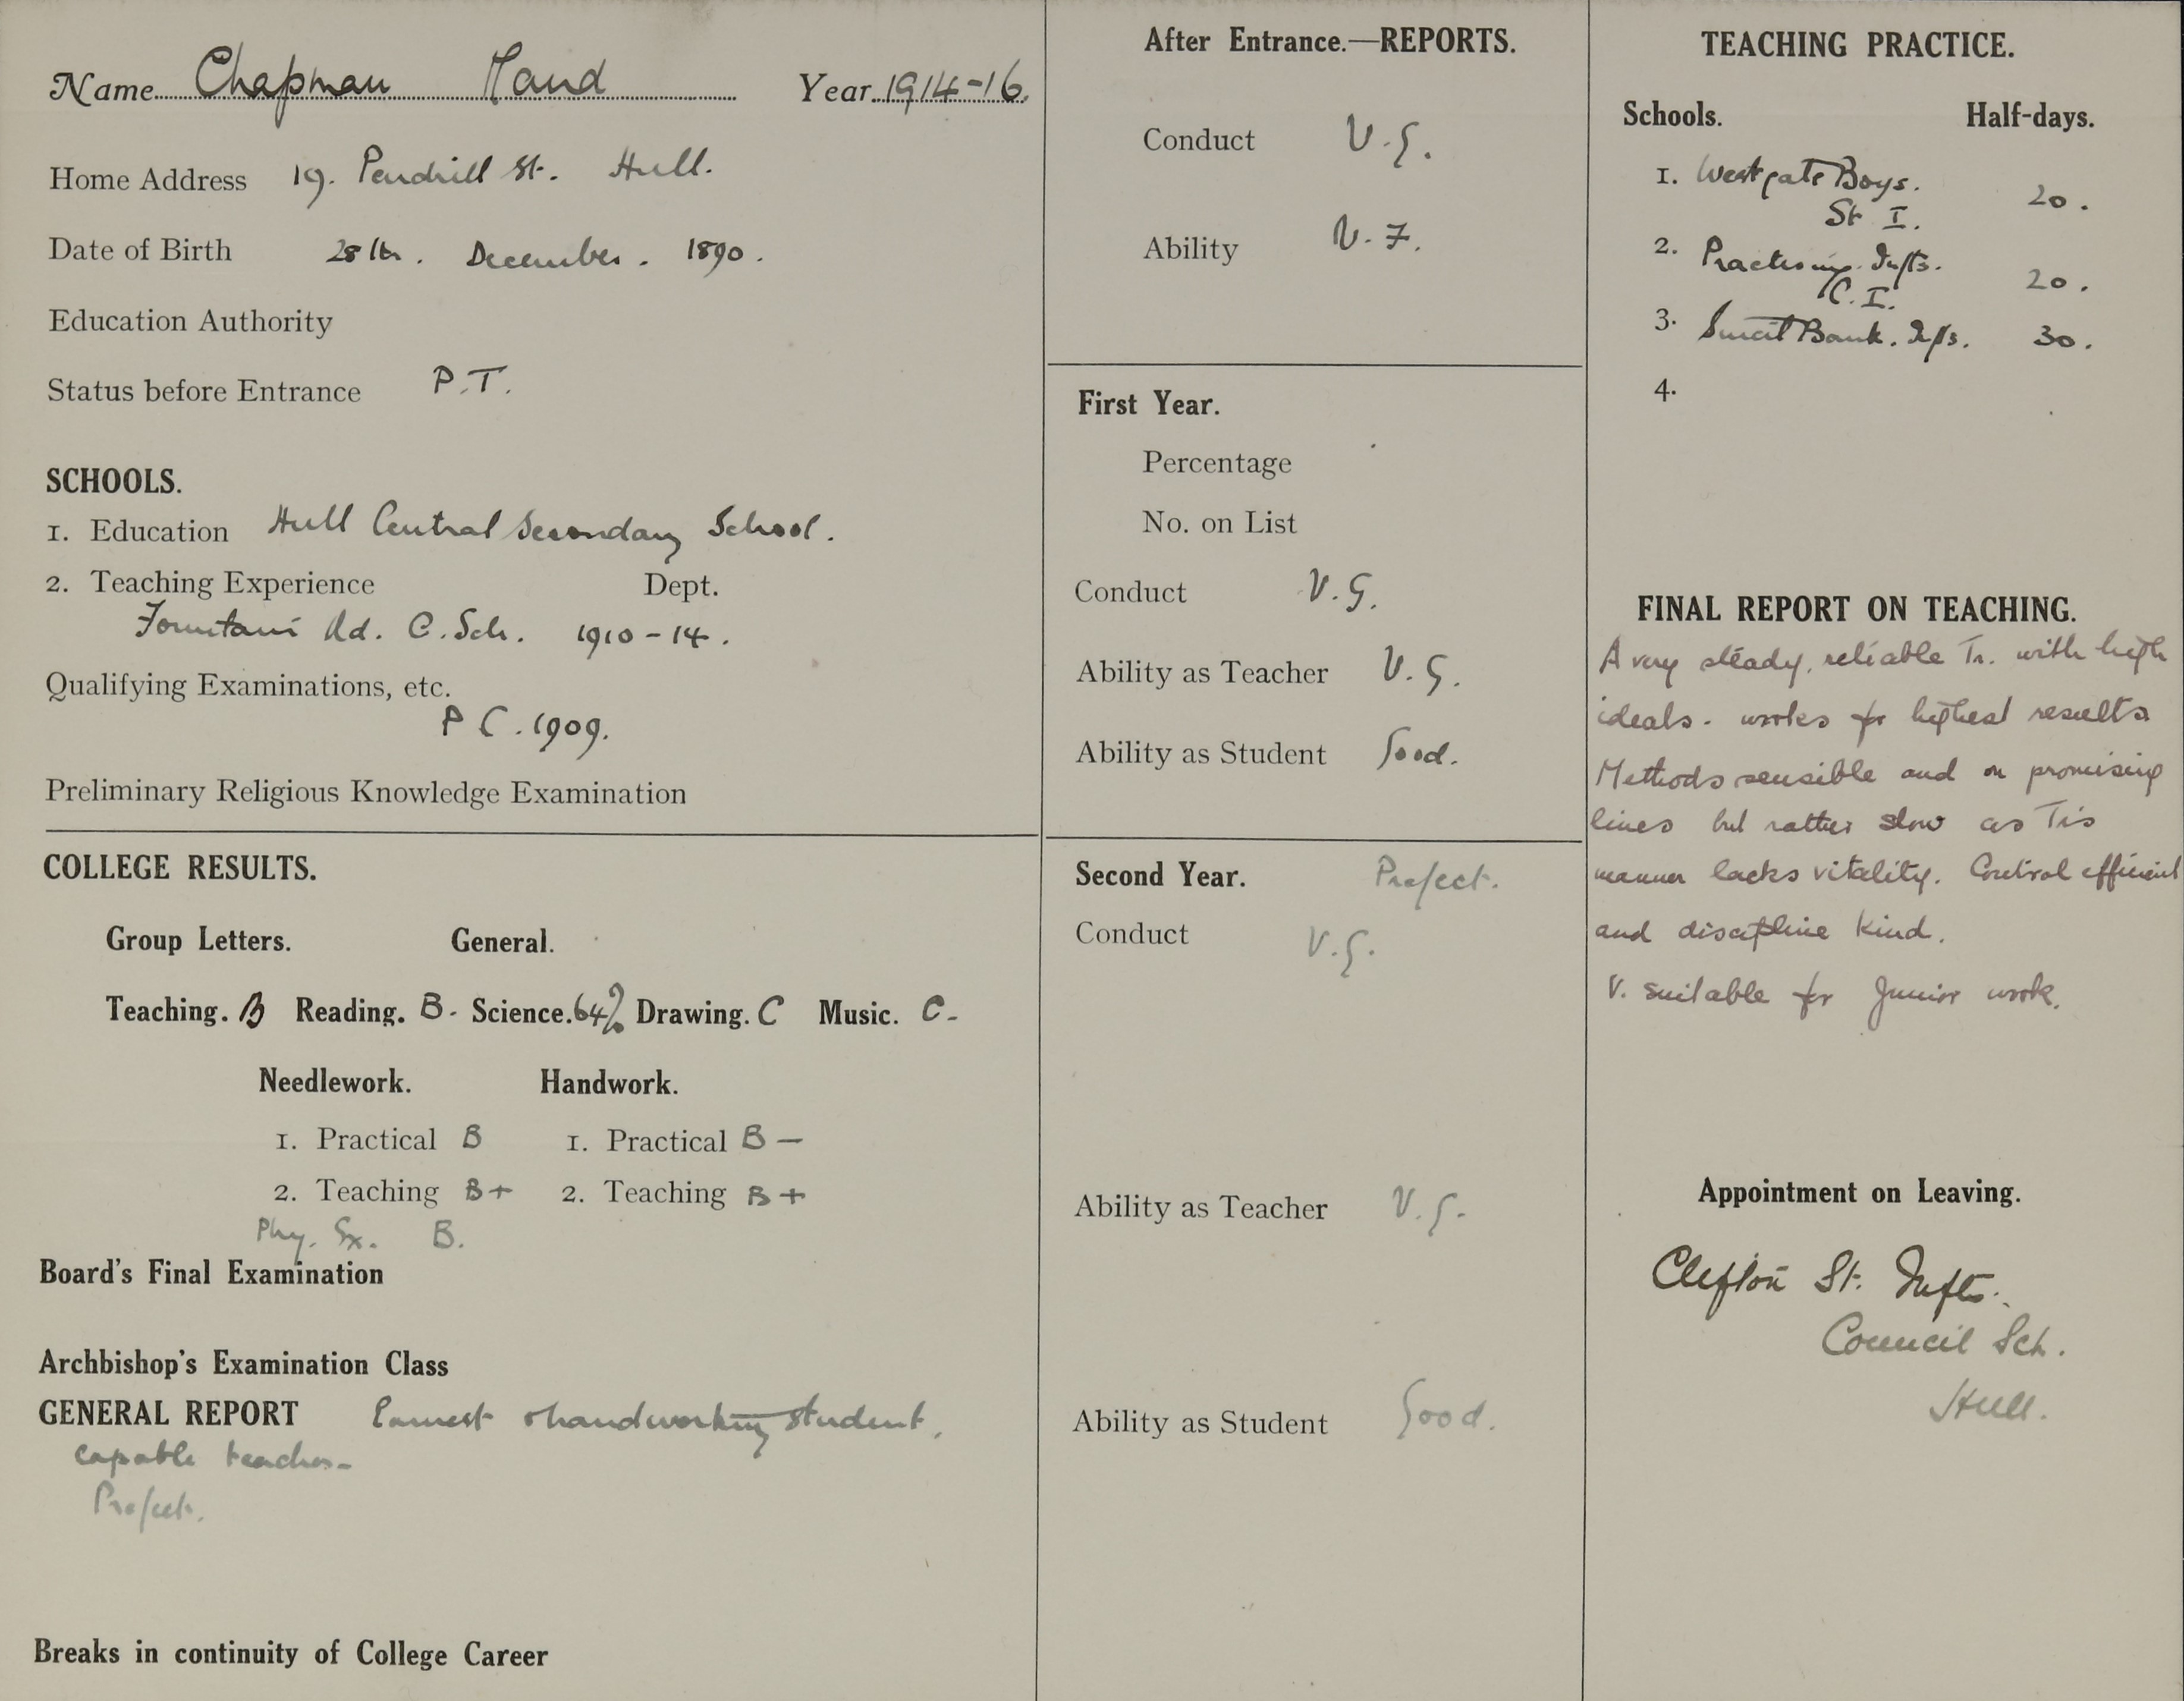 Name Chapman Maud Year 1914-16.
Home Address 19. Pendrill St. Hull.
Date of Birth 28th. December. 1890.
Education Authority
Status before Entrance P.T.
SCHOOLS.
1. Education Hull Central Secondary School.
2. Teaching Experience Dept.
Fountain Rd. C. Sch. 1910-14.
Qualifying Examinations, etc.
P C. 1909.
Preliminary Religious Knowledge Examination
COLLEGE RESULTS.
Group Letters. General.
Teaching. B Reading. B- Science. 64% Drawing. C Music. C-
Needlework. Handwork.
1. Practical B 1. Practical B-
2. Teaching B+ 2. Teaching B+
Phy. Ex. B.
Board's Final Examination
Archbishop's Examination Class
GENERAL REPORT Earnest & hardworking student,
capable teacher-
Prefect.
Breaks in continuity of College Career
After Entrance.—REPORTS.
Conduct V.G.
Ability V.F.
First Year.
Percentage
No. on List
Conduct V.G.
Ability as Teacher V.G.
Ability as Student Good.
Second Year. Prefect.
Conduct V.G.
Ability as Teacher V.G.
Ability as Student Good.
TEACHING PRACTICE.
Schools. Half-days.
1. Westgate Boys. 20.
St I.
2. Practising Infts. 20.
C. I.
3. Bank. Infs. 30.
4.
FINAL REPORT ON TEACHING.
A very steady, reliable Tr. with high
ideals. works for highest results
Methods sensible and on promising
lines but rather slow as T's
manner lacks vitality. Control efficient
and discipline kind.
V. suitable for Junior work.
Appointment on Leaving.
Clifton St. Infts.
Council Sch.
Hull.